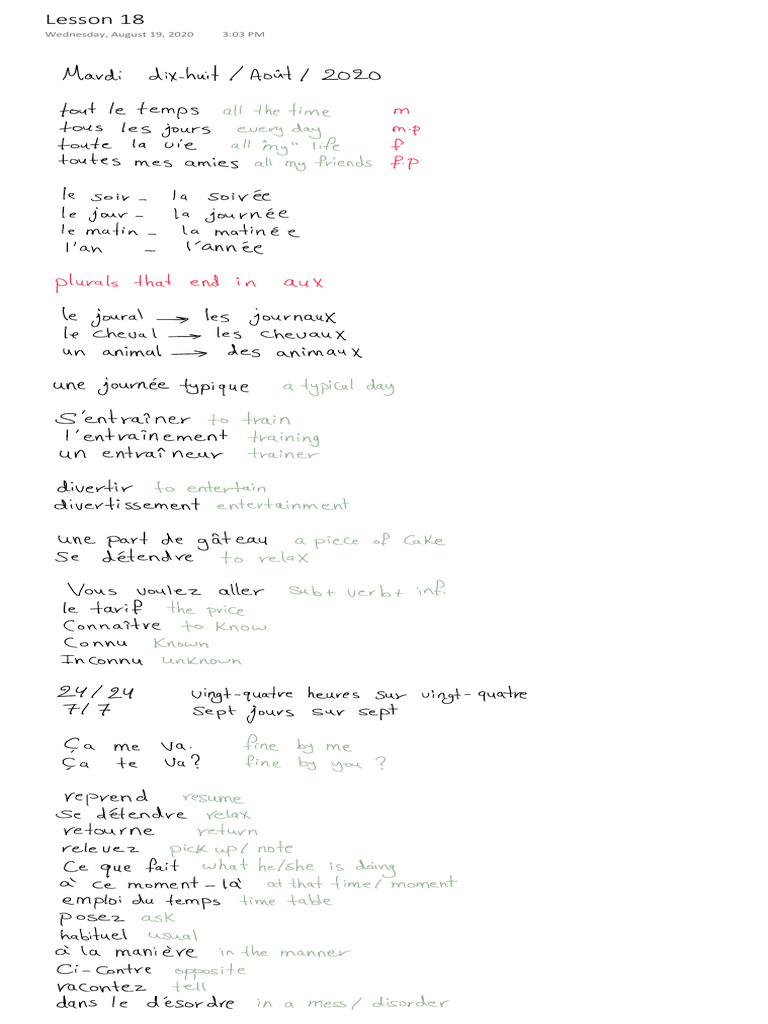 Lesson 18
Wednesday, August 19, 2020 3:03 PM
Mardi dix-huit / Août / 2020
tout le temps all the time m
tous les jours every day m.p
toute la vie all "my" life f
toutes mes amies all my friends f.p
le soir - la soirée
le jour - la journée
le matin - la matinée
l'an - l'année
plurals that end in aux
le joural → les journaux
le cheval → les chevaux
un animal → des animaux
une journée typique a typical day
S'entraîner to train
l'entraînement training
un entraîneur trainer
divertir to entertain
divertissement entertainment
une part de gâteau a piece of cake
se détendre to relax
Vous voulez aller sub+ verb+ inf.
le tarif the price
Connaître to know
Connu Known
Inconnu unknown
24/24 vingt-quatre heures sur vingt-quatre
7/7 sept jours sur sept
Ça me va. fine by me
Ça te va? fine by you ?
reprend resume
se détendre relax
retourne return
relevez pick up/ note
Ce que fait what he/she is doing
à ce moment-là at that time/ moment
emploi du temps time table
posez ask
habituel usual
à la manière in the manner
Ci-Contre opposite
racontez tell
dans le désordre in a mess/ disorder